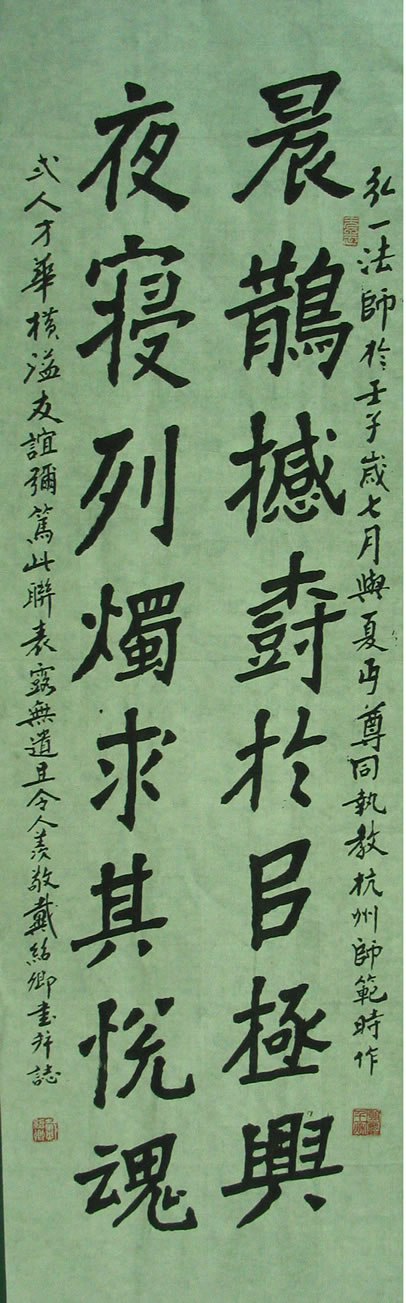 弘一法師於壬子歲七月與夏丏尊同執教杭州師範時作
晨鵲撼於㠯極興
夜寢列燭求其悅魂
弍人才華橫溢友誼彌篤此聯表露無遺且令人羨敬戴紹卿書并誌